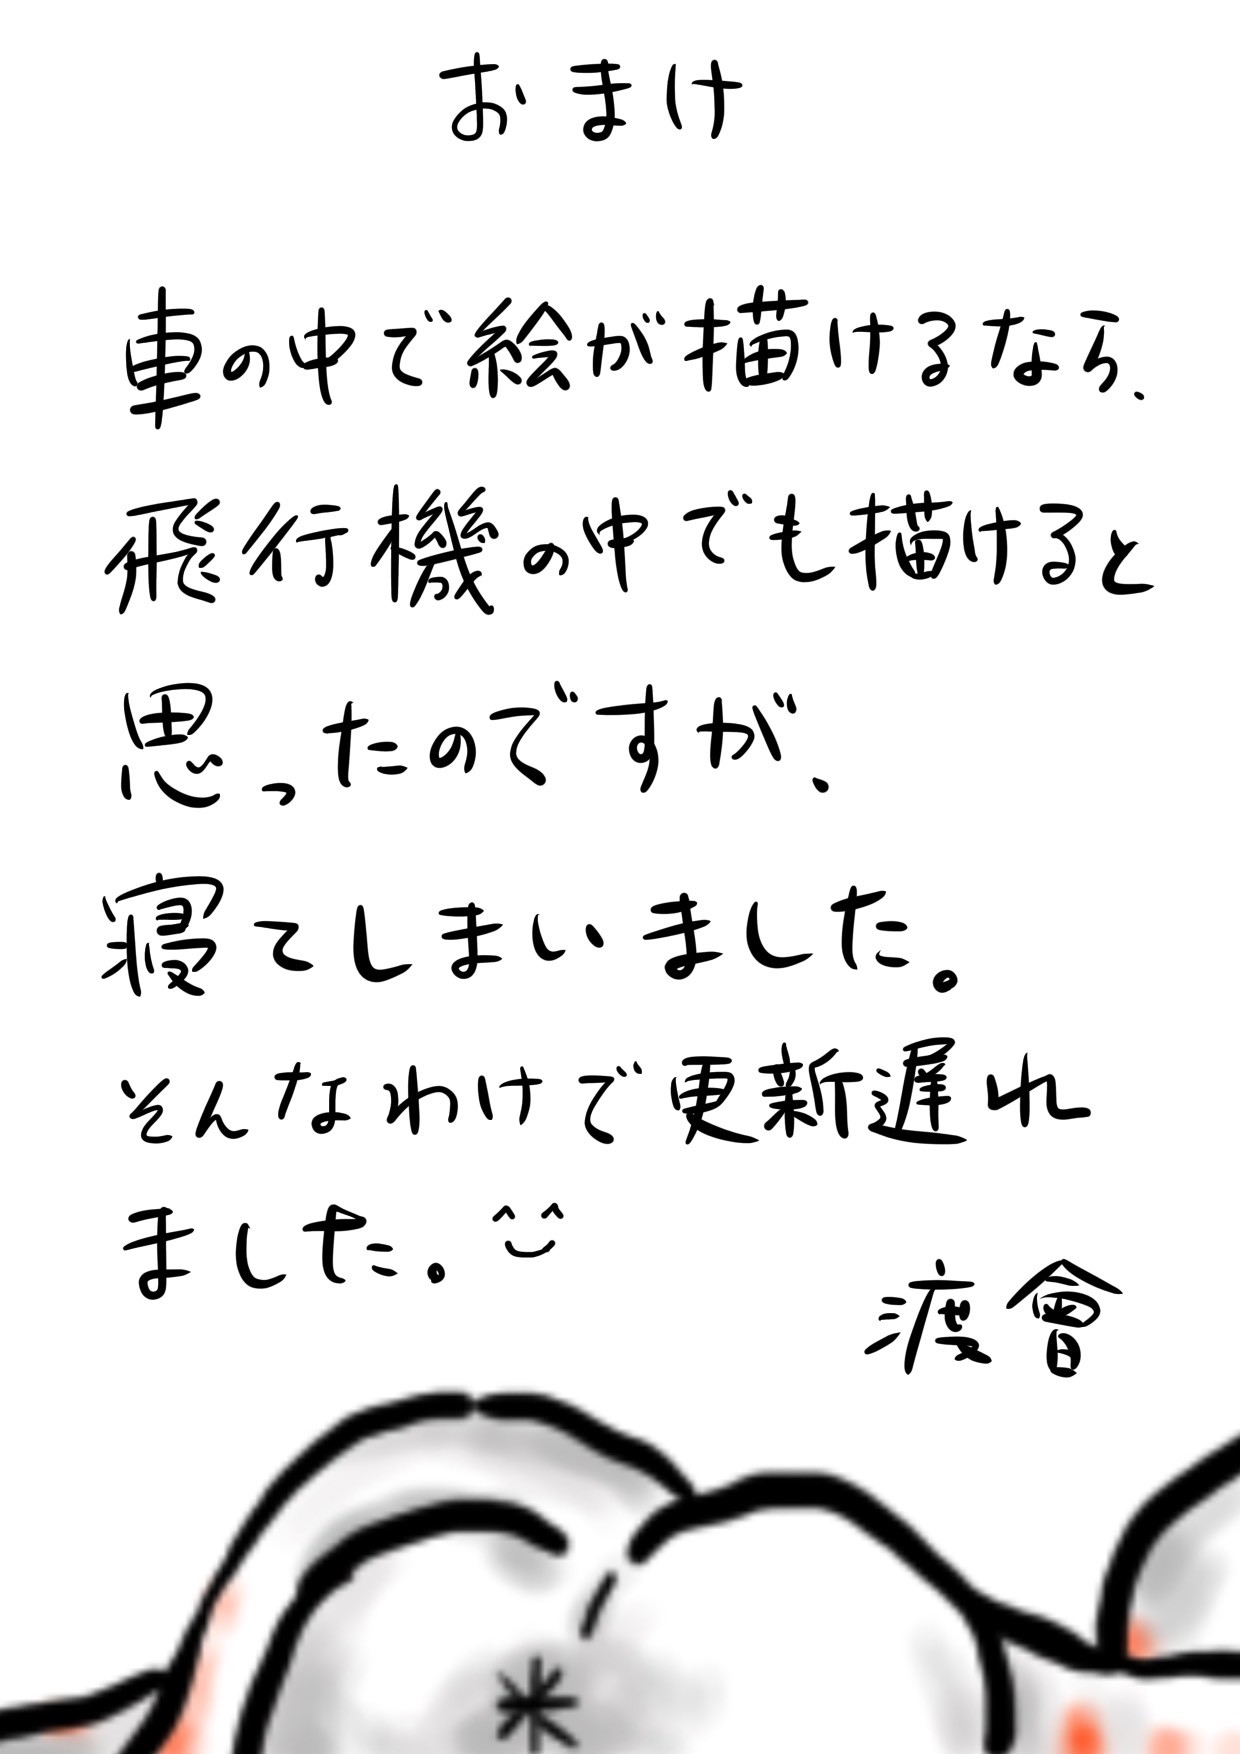 おまけ
車の中で絵が描けるなら、
飛行機の中でも描けると
思ったのですが、
寝てしまいました。
そんなわけで更新遅れ
ました。^^
渡會